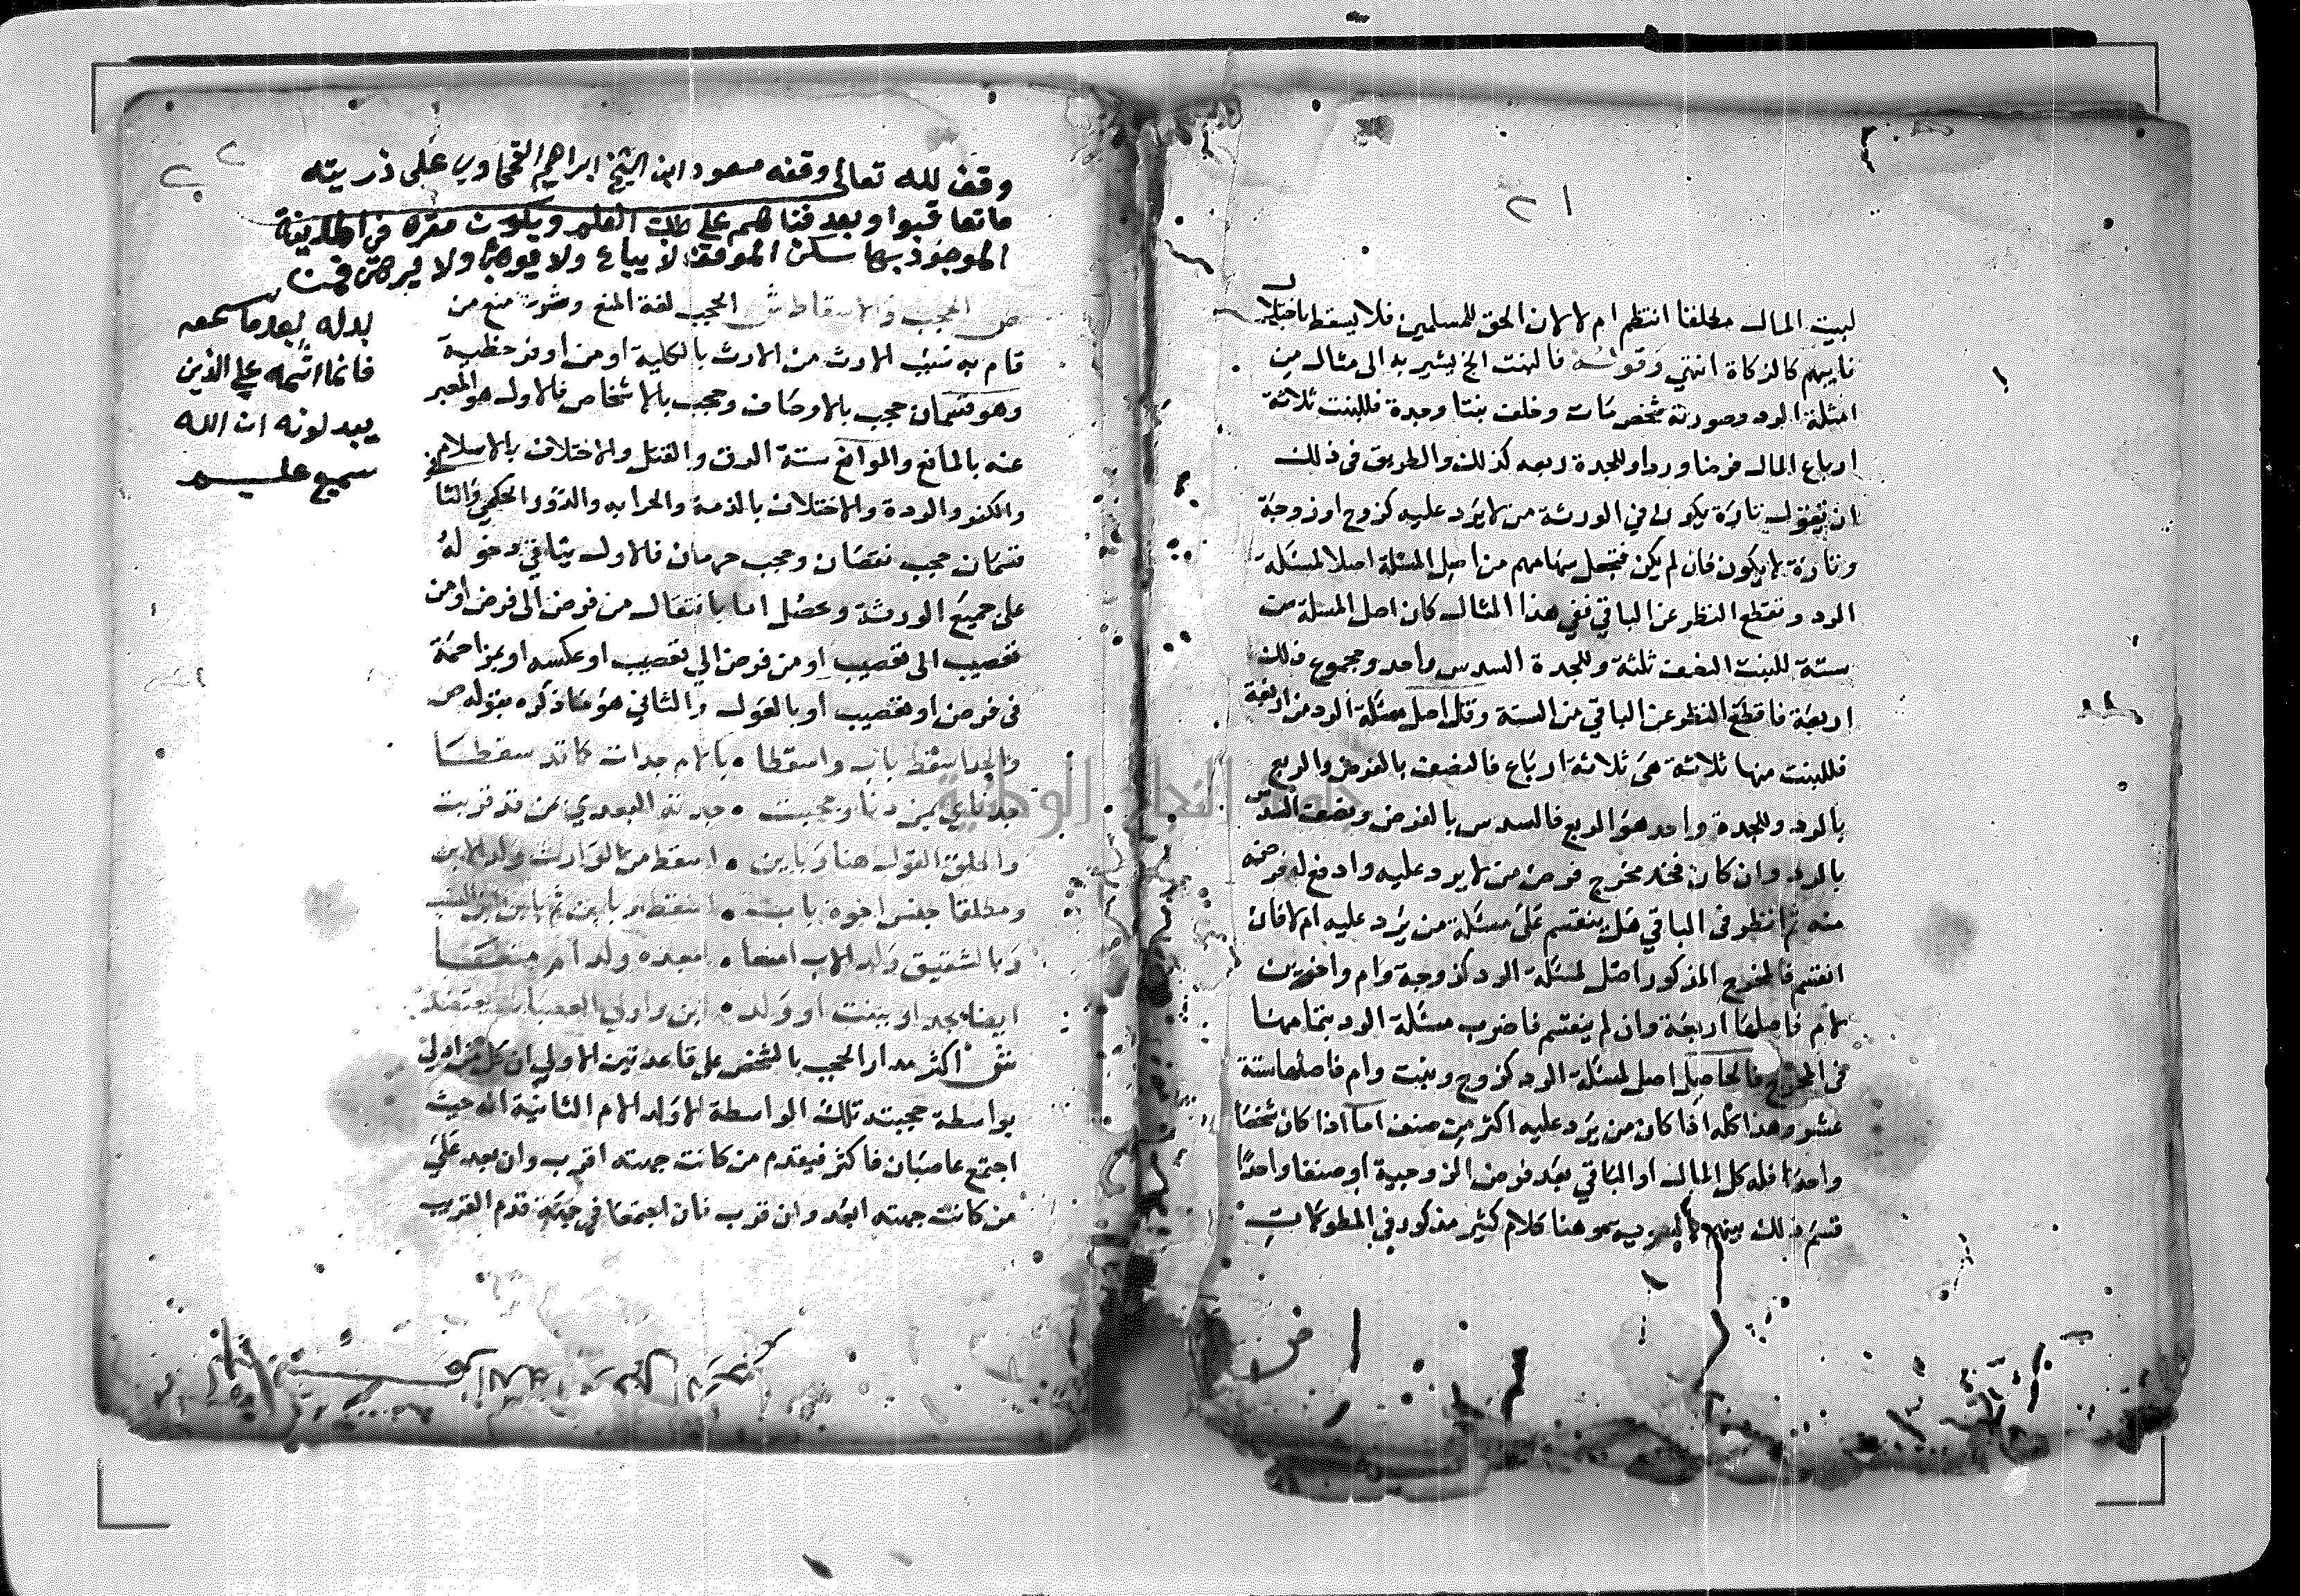 ٢١
لبيت المال مطلقا انتظم ام لا لان الحق للمسلمين فلا يسقط باختلال
نايبهم كالزكاة انتهي وقوله فالبنت الخ يشير به الى مثال من
امثلة الرد وصورته شخص مات وخلف بنتا وجدة فللبنت ثلاثة
ارباع المال فرضا وردا وللجدة ربعه كذلك والطريق في ذلك
ان تقول تارة يكون في الورثة من لا يرد عليه كزوج او زوجة
وتارة لا يكون فان لم يكن فتجعل سهامهم من اصل المسئلة اصلا لمسئلة
الرد وتقطع النظر عن الباقي ففي هذا المثال كان اصل المسئلة من
ستة للبنت النصف ثلثة وللجدة السدس واحد ومجموع ذلك
اربعة فاقطع النظر عن الباقي من الستة وقل اصل مسئلة الرد من اربعة
فللبنت منها ثلاثة هي ثلاثة ارباع فالنصف بالفرض والربع
بالرد وللجدة واحد هو الربع فالسدس بالفرض ونصف السدس
بالرد وان كان فخذ مخرج فرض من لا يرد عليه وادفع له فرضه
منه ثم انظر في الباقي هل ينقسم على مسئلة من يرد عليه ام لا فان
انقسم فالمخرج المذكور اصل لمسئلة الرد كزوجة وام واخوين
لام فاصلها اربعة وان لم ينقسم فاضرب مسئلة الرد بتمامها
في المخرج فالحاصل اصل لمسئلة الرد كزوج وبنت وام فاصلها ستة
عشر وهذا كله اذا كان من يرد عليه اكثر من صنف اما اذا كان شخصا
واحدا فله كل المال او الباقي بعد فرض الزوجية او صنفا واحدا
قسم ذلك بينهم بالسوية وهنا كلام كثير مذكور في المطولات
٢٢
وقف لله تعالى وقفه مسعود ابن الشيخ ابراهيم القحاوي على ذريته
ماتعاقبوا وبعد فناهم على طلبة العلم ويكون مقره في المدينة
الموجود بها سكن الموقف لا يباع ولا يوهب ولا يرهن فمن
بدله بعد ما سمعه
فانما اثمه على الذين
يبدلونه ان الله
سميع عليم
ص الحجب والاسقاط ش الحجب لغة المنع وشرعا منع من
قام به سبب الارث من الارث بالكلية او من اوفر حظيه
وهو قسمان حجب بالاوصاف وحجب بالاشخاص فالاول هو المعبر
عنه بالمانع والموانع ستة الرق والقتل والاختلاف بالاسلام
والكفر والردة والاختلاف بالذمة والحرابه والدور الحكمي والثاني
قسمان حجب نقصان وحجب حرمان فالاول يتاتي دخوله
على جميع الورثة وحصل اما بانتقال من فرض الى فرض او من
تعصيب الى تعصيب او من فرض الي تعصيب او عكسه او بمزاحمة
في فرض او تعصيب او بالعول والثاني هو ما ذكره بقوله ص
والجد اسقط باب واسقطا • بالام جدات كما قد سقطا
وحجبت • جدته البعدي بمن قد قربت
اسقط من الوارث ولد الابن
ومطلقا جنس اخوة
وبالشقيق ولد الاب امنعا • بعده ولد ام
ايضا بجد او ببنت او ولد • ابن واولي العصبات
ش اكثر مدار الحجب بالشخص على قاعدتين الاولي ان كل من ادلى
بواسطة حجبته تلك الواسطة الا ولد الام الثانية انه حيث
اجتمع عاصبان فاكثر فيقدم من كانت جهته اقرب وان بعد على
من كانت جهته ابعد وان قرب فان اجتمعا في جهة قدم القريب
جامعة النجاح الوطنية